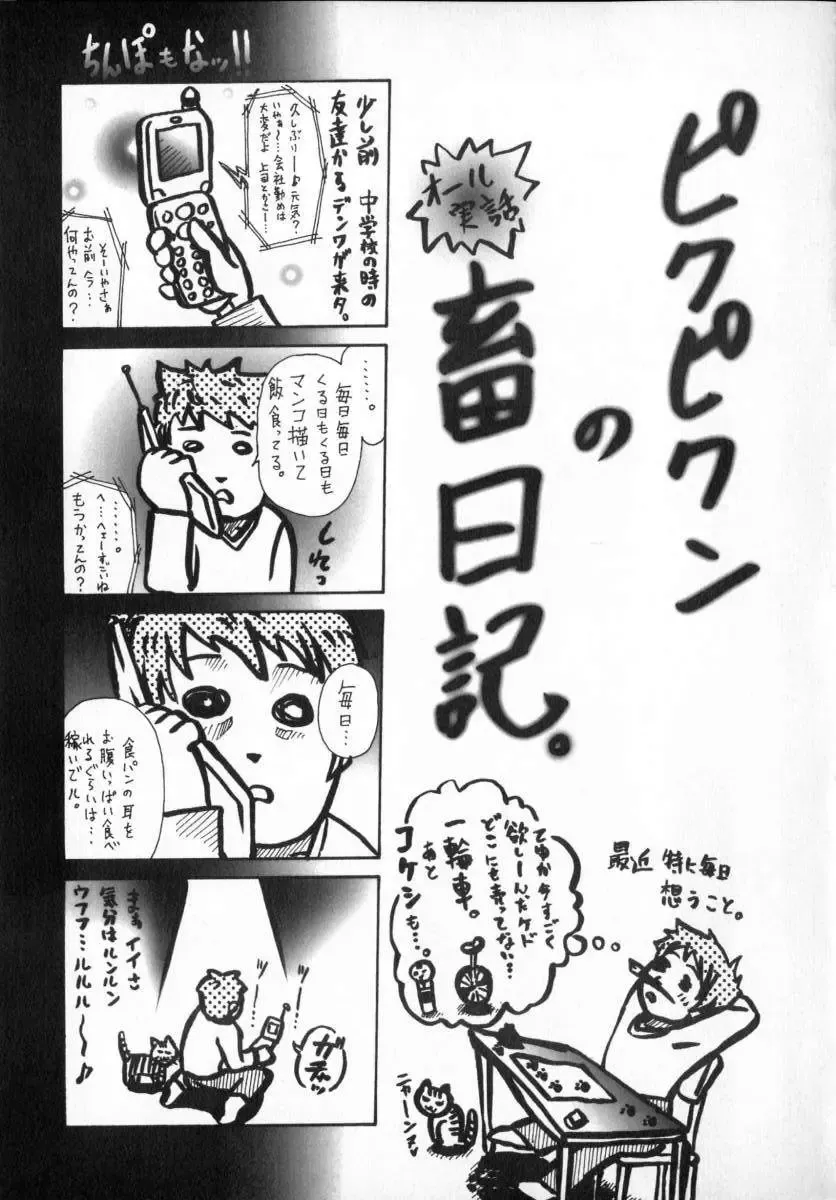 ピクピクン
の
畜日記。
オール
実話
ちんぽもなッ!!
少し前 中学校の時の
友達からデンワが来タ。
久しぶりー♪元気?
いやぁ〜…会社勤めは
大変だよ 上司とかさー…
そーいやさぁ
お前 今…
何やってんの?
……。
毎日毎日
くる日もくる日も
マンコ描いて
飯食ってる。
しれっ
……。
へ…へェーすごいね
もうかってんの?
毎日…
食パンの耳を
お腹いっぱい食べ
れるぐらいは…
稼いでル。
まぁイイさ
気分はルンルン
ウフフ…ルルル〜〜♪
ツー
ツー
ガチャッ
最近 特に毎日
想うこと。
てゆか今すごく
欲しーんだケド
どこにも売ってない…
一輪車。
あと
コケシも…。
ニャーン